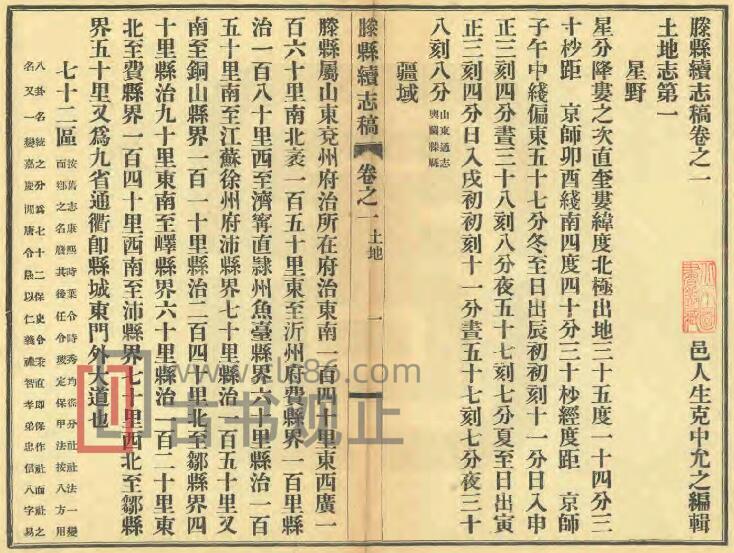 滕縣續志稿卷之一
土地志第一　　邑人生克中允之編輯
星野
星分降婁之次直奎婁緯度北極出地三十五度一十四分三
十秒距　京師卯酉綫南四度四十分三十秒經度距　京師
子午中綫偏東五十七分冬至日出辰初初刻十一分日入申
正三刻四分晝三十八刻八分夜五十七刻七分夏至日出寅
正三刻四分日入戌初初刻十一分晝五十七刻七分夜三十
八刻八分
山東通志
輿圖滕縣
疆域
滕縣續志稿　卷之一　土地　一
滕縣屬山東兗州府治所在府治東南一百四十里東西廣一
百六十里南北袤一百五十里東至沂州府費縣界一百里縣
治一百八十里西至濟甯直隸州魚臺縣界六十里縣治一百
五十里南至江蘇徐州府沛縣界七十里縣治一百五十里又
南至銅山縣界一百一十里縣治二百四十里北至鄒縣界四
十里縣治九十里東南至嶧縣界六十里縣治一百二十里東
北至費縣界一百四十里西南至沛縣界七十里西北至鄒縣
界五十里又爲九省通衢卽縣城東門外大道也
七十二區
按舊志康熙時葉令時秀均徭分社社法一變
而鄉之名廢其後任令璣定保甲法按八方用
八卦名統之分爲七十二保史令秉直卽保作社而社之
名又一變嘉慶間唐令烝以仁義禮智孝弟忠信八字易
www.cu86.com
古书观正